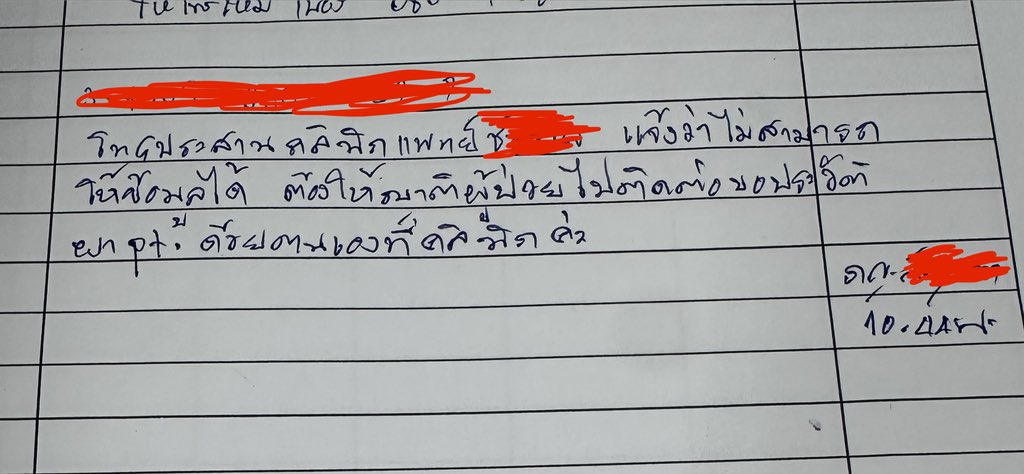 โทรประสานคลินิกแพทย์ แจ้งว่าไม่สามารถ
ให้ข้อมูลได้ ต้องให้ญาติผู้ป่วยไปติดต่อขอประวัติ
ยา pt. ด้วยตนเองที่คลินิกค่ะ
ภญ.
10.44น.